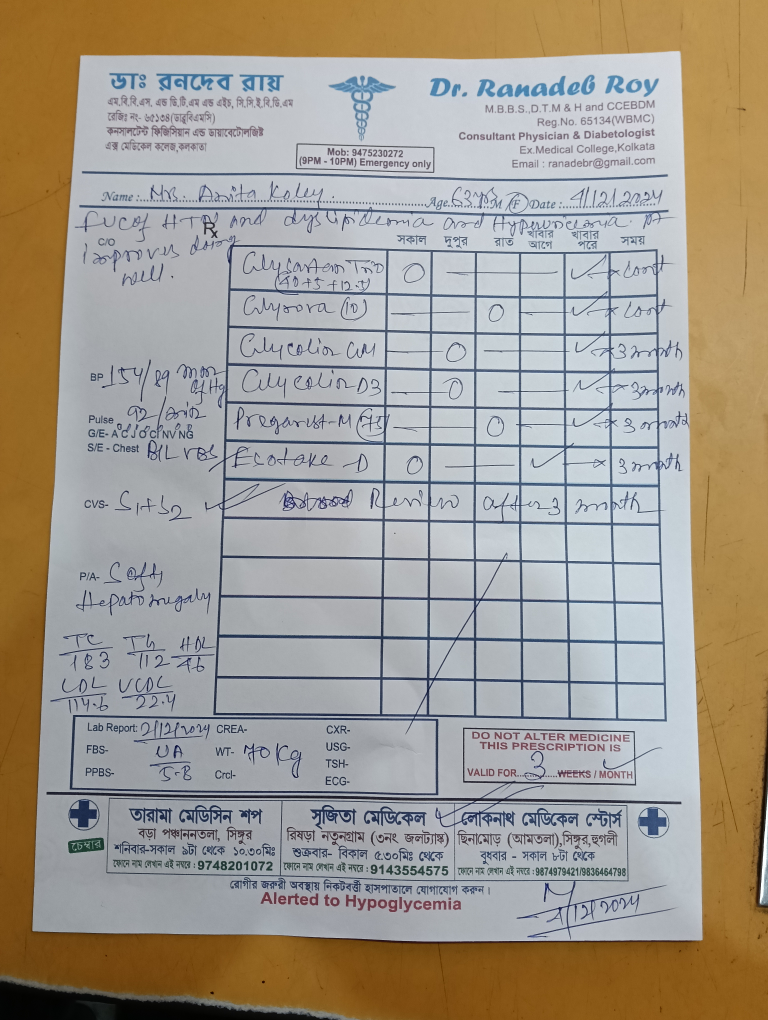 ডাঃ রনদেব রায়
এম.বি.বি.এস. এন্ড ডি.টি.এম এন্ড এইচ, সি.সি.ই.বি.ডি.এম
রেজিঃ নং- ৬৫১৩৪(ডাব্লুবিএমসি)
কনসালটেন্ট ফিজিসিয়ান এন্ড ডায়াবেটোলজিষ্ট
এক্স মেডিকেল কলেজ,কলকাতা
Mob: 9475230272
(9PM - 10PM) Emergency only
Dr. Ranadeb Roy
M.B.B.S.,D.T.M & H and CCEBDM
Reg.No. 65134(WBMC)
Consultant Physician & Diabetologist
Ex.Medical College,Kolkata
Email : ranadebr@gmail.com
Name: Mrs. Anita Koley. Age 63 yrs M F Date: 4/12/2024
FUC of HTN and dyslipidemia and Hyperuricemia. Pt
Rx
C/O improves doing
well.
সকাল দুপুর রাত খাবার আগে খাবার পরে সময়
(40+5+12.5) cont
(10) cont
3 month
D3 3 month
-M (75) 3 month
D 3 month
Review after 3 month
BP 154/89 mm of Hg
Pulse 92/min
G/E- A C J O C NV NG
S/E - Chest B/L VBS
CVS- S1+S2
P/A- Soft,
Hepatomegaly
TC 183 TG 112 HDL 46
LDL 114.6 VLDL 22.4
Lab Report: 2/12/2024 CREA- CXR-
FBS- UA WT- 70 Kg USG-
PPBS- 5.8 Crcl- TSH-
ECG-
DO NOT ALTER MEDICINE
THIS PRESCRIPTION IS
VALID FOR 3 WEEKS / MONTH
চেম্বার
তারামা মেডিসিন শপ
বড়া পঞ্চাননতলা, সিঙ্গুর
শনিবার-সকাল ৯টা থেকে ১০.৩০মিঃ
ফোনে নাম লেখান এই নম্বরে : 9748201072
সুজিতা মেডিকেল
রিষড়া নতুনগ্রাম (৩নং জলট্যাঙ্ক)
শুক্রবার- বিকাল ৫.৩০মিঃ থেকে
ফোনে নাম লেখান এই নম্বরে : 9143554575
লোকনাথ মেডিকেল স্টোর্স
ছিনামোড় (আমতলা),সিঙ্গুর,হুগলী
বুধবার - সকাল ৮টা থেকে
ফোনে নাম লেখান এই নম্বরে : 9874979421/9836464798
রোগীর জরুরী অবস্থায় নিকটবর্ত্তী হাসপাতালে যোগাযোগ করুন।
Alerted to Hypoglycemia
4/12/2024